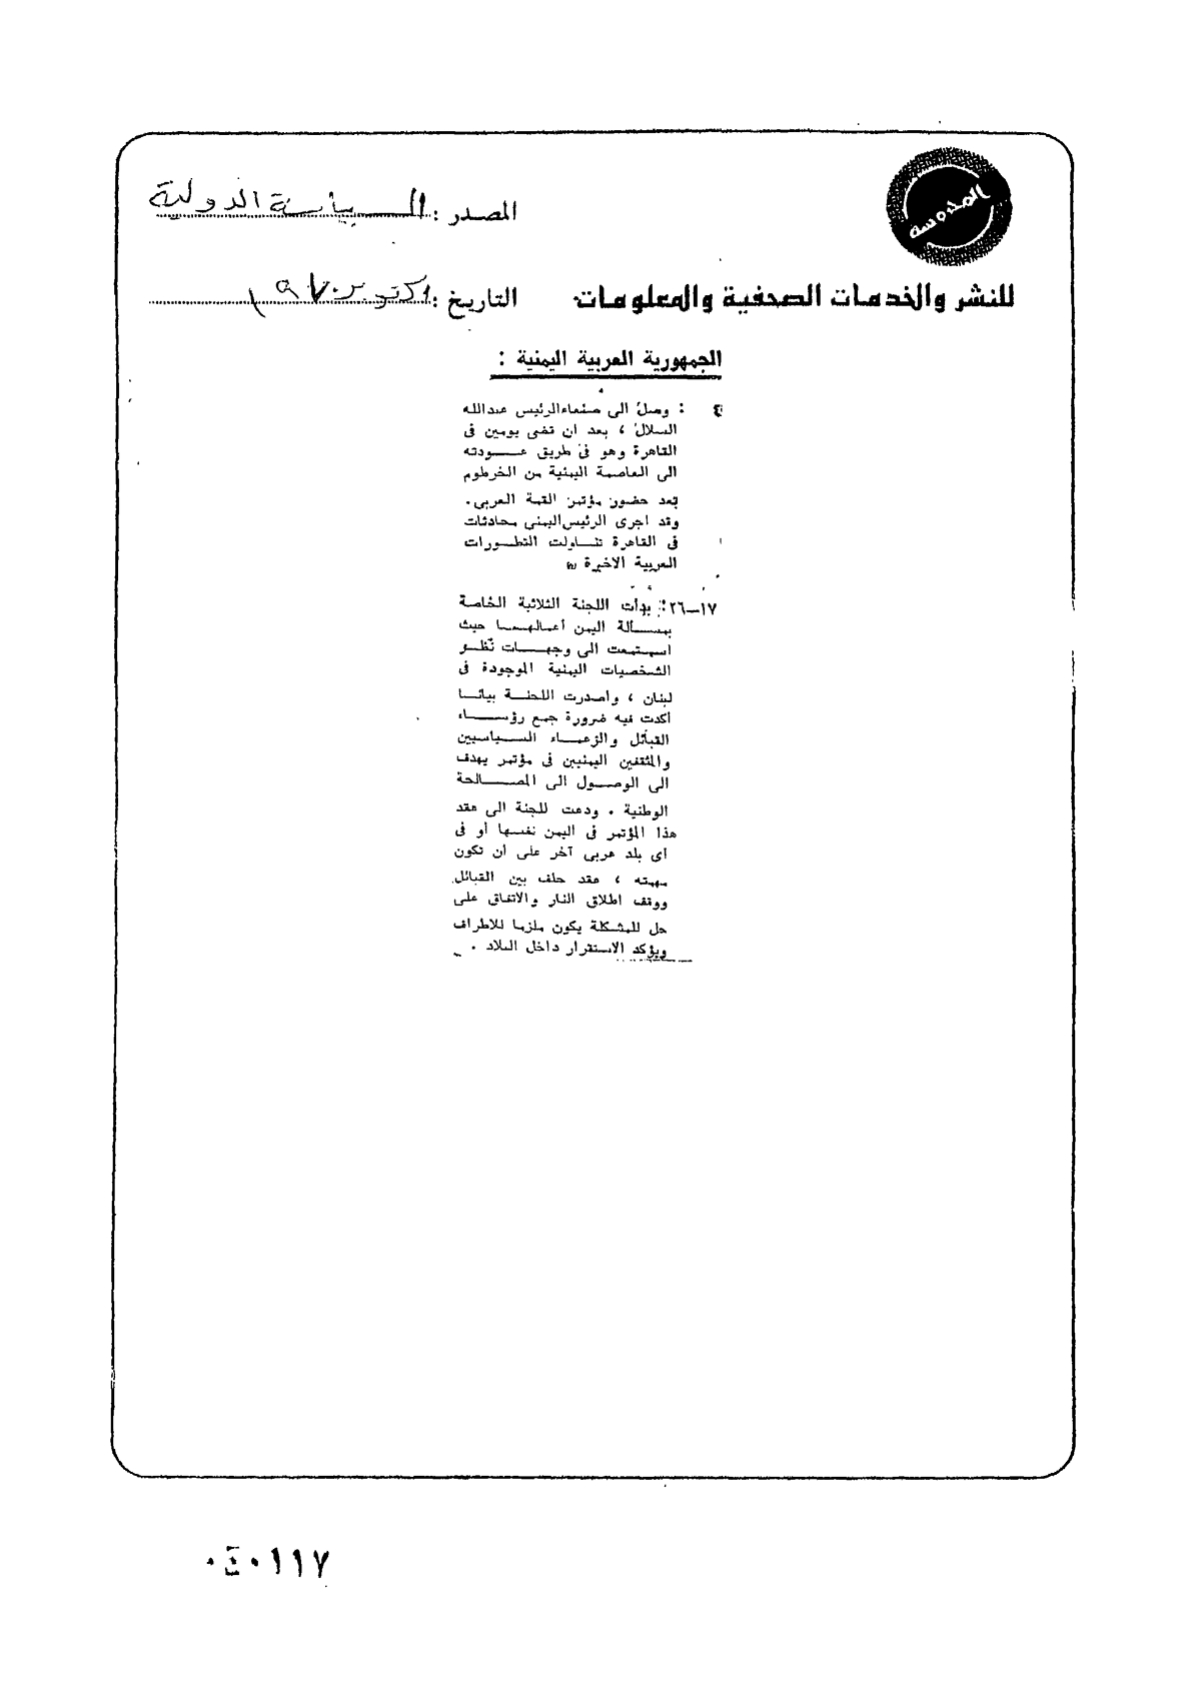 المدوسه
المصدر : السياسة الدولية
للنشر والخدمات الصحفية والمعلومات
التاريخ : اكتوبر
الجمهورية العربية اليمنية :
٤ : وصل الى صنعاء الرئيس عبدالله
السلال ، بعد ان قضى يومين فى
القاهرة وهو فى طريق عـــودته
الى العاصمة اليمنية من الخرطوم
بعد حضور مؤتمر القمة العربى .
وقد اجرى الرئيس اليمنى محادثات
فى القاهرة تنــاولت التطــورات
العربية الاخيرة
١٧–٢٦ : بدأت اللجنة الثلاثية الخاصة
بمســألة اليمن أعمالهــا حيث
استمعت الى وجهــات نظــر
الشخصيات اليمنية الموجودة فى
لبنان ، واصدرت اللجنــة بيانــا
اكدت فيه ضرورة جمع رؤســاء
القبائل والزعمــاء الســياسيين
والمثقفين اليمنيين فى مؤتمر يهدف
الى الوصــول الى المصــالحة
الوطنية . ودعت للجنة الى عقد
هذا المؤتمر فى اليمن نفسها أو فى
اى بلد عربى آخر على ان تكون
مهمته ، عقد حلف بين القبائل
ووقف اطلاق النار والاتفاق على
حل للمشكلة يكون ملزما للاطراف
ويؤكد الاستقرار داخل البلاد .
٠٤٠١١٧